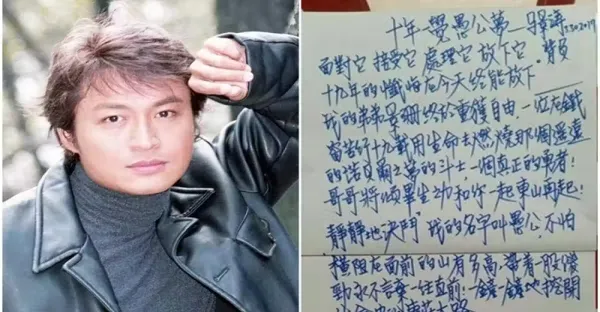 十年一覺愚公夢
面對它 接受它 處理它 放下它. 背負
十九年的懺悔在今天終能放下
我的弟弟 終於重獲自由.一 在鐵
窗苦 十九載用生命去燃燒那個遙遠
的諾貝爾之夢的斗士,一個真正的勇者!
哥哥將傾畢生功和你一起東山再起!
靜靜地決鬥,我的名字叫愚公,不怕
橫阻在面前的山有多高,帶著一股傻
勁永不言棄一往直前,一鏟一鏟地挖開